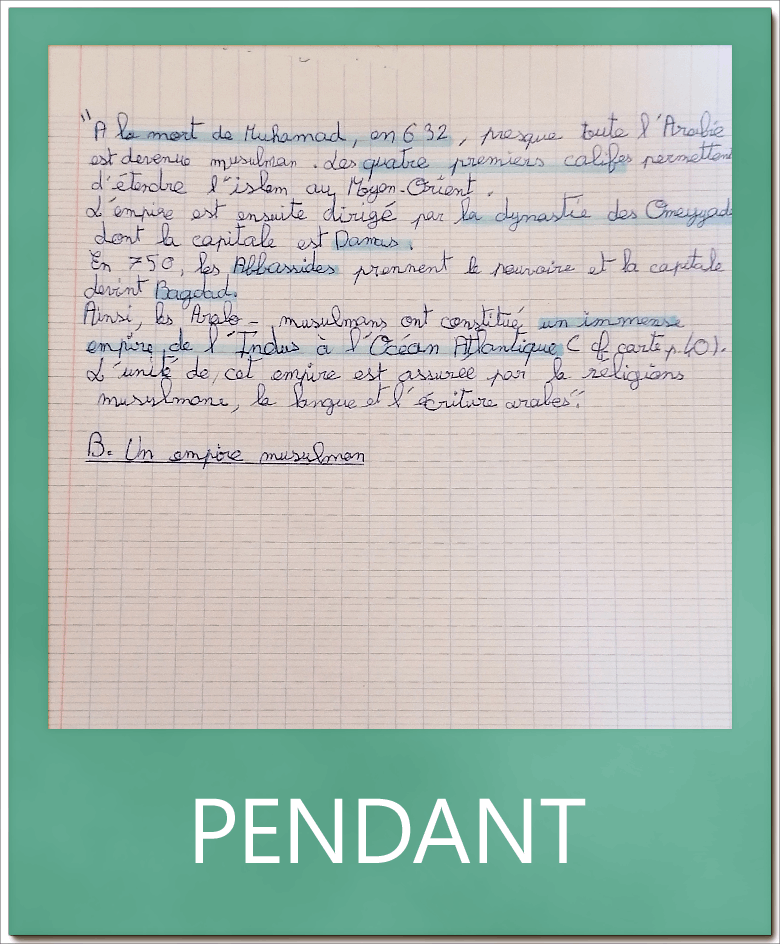 "A la mort de Muhamad, en 632, presque toute l'Arabie
est devenue musulman. Les quatre premiers califes permettent
d'étendre l'islam au Moyen-Orient.
L'empire est ensuite dirigé par la dynastie des Omeyyad
dont la capitale est Damas.
En 750, les Abbassides prennent le pouvoire et la capitale
devint Bagdad.
Ainsi, les Arabo-musulmans ont constitué un immense
empire de l'Indus à l'Océan Atlantique (cf carte p.40).
L'unité de cet empire est assurée par la religions
musulmane, la langue et l'écriture arabes".
B. Un empire musulman
PENDANT